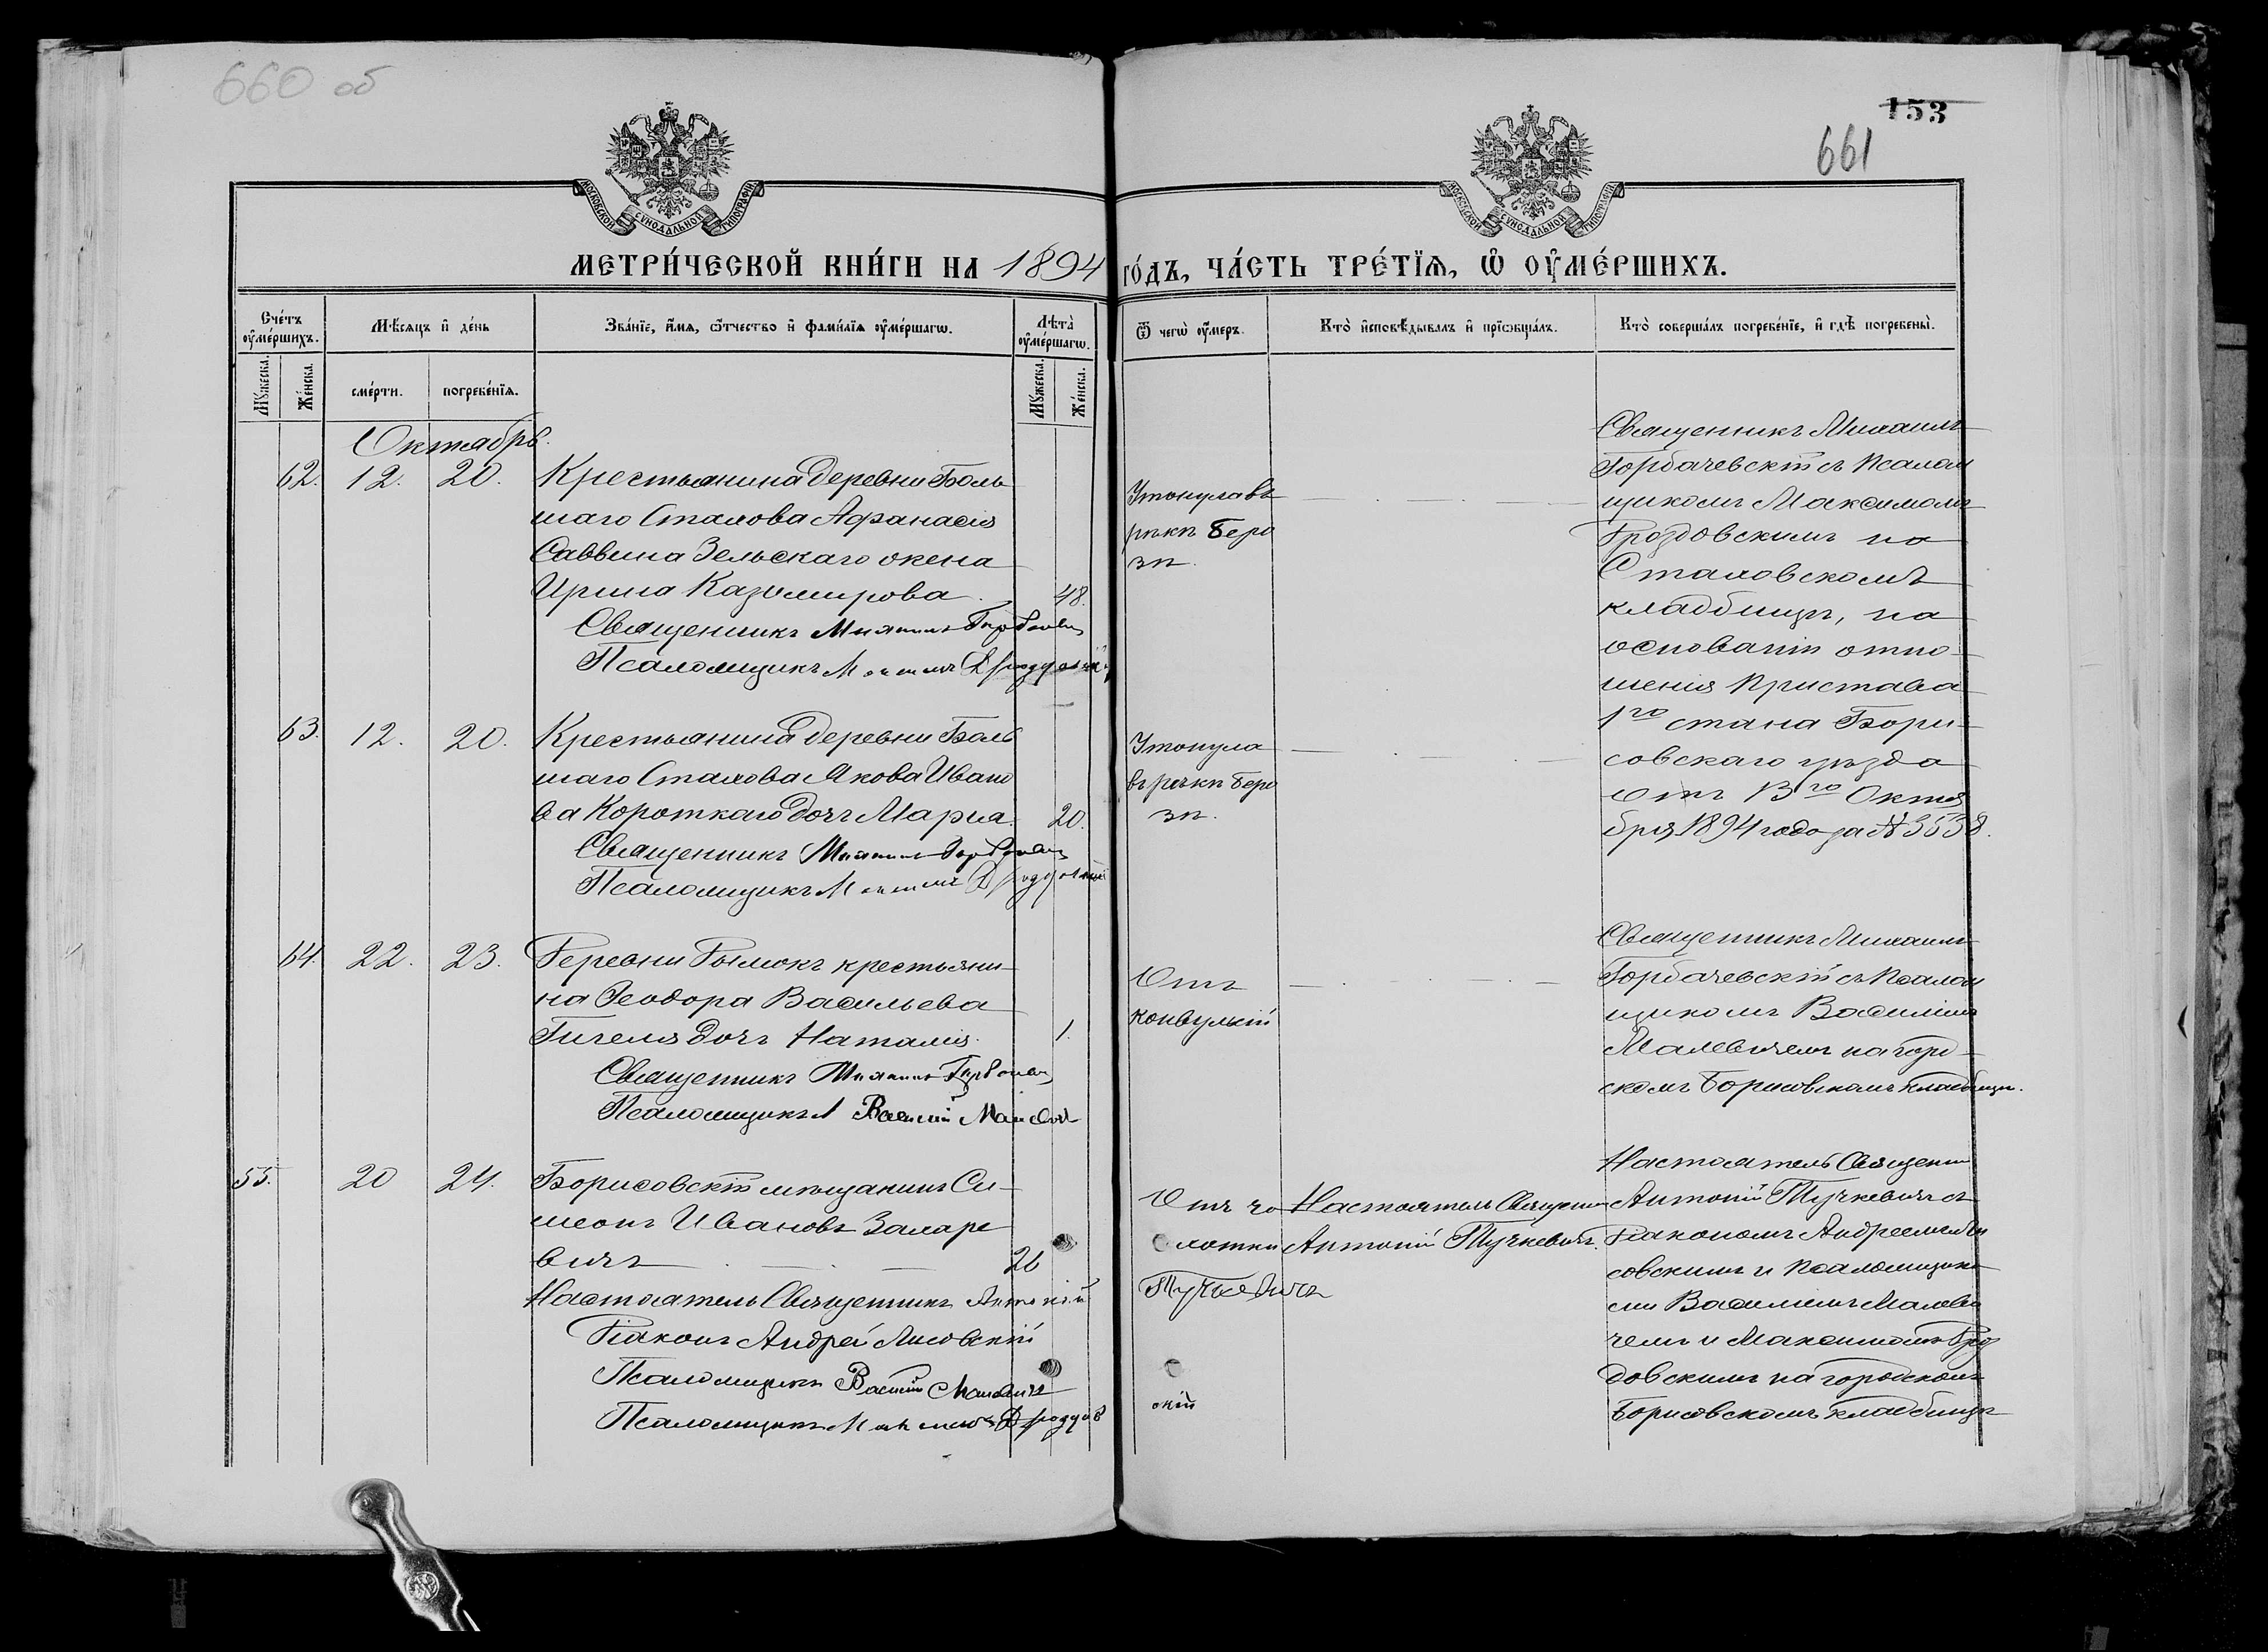 660 об
153
661
МОСКОВСКОЙ СѴНОДАЛЬНОЙ ТИПОГРАФІИ
МОСКОВСКОЙ СѴНОДАЛЬНОЙ ТИПОГРАФІИ
МЕТРИ́ЧЕСКОЙ КНИ́ГИ НА 1894 ГО́ДЪ, ЧА́СТЬ ТРЕ́ТЇѦ, Ѡ҆ ОУ҆МЕ́РШИХЪ.
Сче́тъ оу҆ме́ршихъ.
Мѣ́сѧцъ и҆ де́нь
Зва́нїе, и҆́мѧ, ѻ҆́тчество и҆ фами́лїѧ оу҆ме́ршагѡ.
Лѣта̀ оу҆ме́ршагѡ.
Ѿ чегѡ̀ оу҆́меръ.
Кто̀ и҆сповѣ́дывалъ и҆ прїѻбща́лъ.
Кто̀ соверша́лъ погребе́нїе, и҆ гдѣ̀ погребены̀.
Мꙋ́жеска.
Же́нска.
сме́рти.
погребе́нїѧ.
Мꙋ́жеска.
Же́нска.
Октябрь.
62. 12. 20. Крестьянина деревни Боль
шаго Стахова Афанасія
Саввина Зельскаго жена
Ирина Казимирова. 48.
Священникъ Михаилъ Горбачевск
Псаломщикъ Максимъ Дроздовскій
Утонула въ
рѣкѣ Бере
зѣ.
Священникъ Михаилъ
Горбачевскій съ Псалом
щикомъ Максимомъ
Дроздовскимъ на
Стаховскомъ
кладбищѣ, на
основаніи отно
шенія Пристава
1го стана Бори
совскаго уѣзда
отъ 13го Октя
бря 1894 года за №
63. 12. 20. Крестьянина деревни Боль
шаго Стахова Якова Ивано
ва Короткаго дочь Марія. 20.
Священникъ Михаилъ Горбачевск
Псаломщикъ Максимъ Дроздовскій
Утонула
въ рѣкѣ Бере
зѣ.
64. 22. 23. Деревни Дымокъ крестьяни
на Ѳеодора Васильева
Гигеля дочь Наталія. 1.
Священникъ Михаилъ Горбачевск
Псаломщикъ Василій Малевичъ
Отъ
конвульсій
Священникъ Михаилъ
Горбачевскій съ Псалом
щикомъ Василіемъ
Малевичемъ на город
скомъ Борисовскомъ кладбищѣ.
55. 20 24. Борисовскій мѣщанинъ Си
меонъ Ивановъ Захаре
вичъ 26
Настоятель Священникъ Антоній
Тучкевичъ
Діаконъ Андрей Лисовскій
Псаломщикъ Василій Малевичъ
Псаломщикъ Максимъ Дроздов
скій
Отъ ча
хотки
Настоятель Священ
Антоній Тучкевичъ.
Настоятель Священни
Антоній Тучкевичъ съ
Діакономъ Андреемъ Ли
совскимъ и Псаломщика
ми Василіемъ Малеви
чемъ и Максимомъ Дроз
довскимъ на городскомъ
Борисовскомъ кладбищѣ